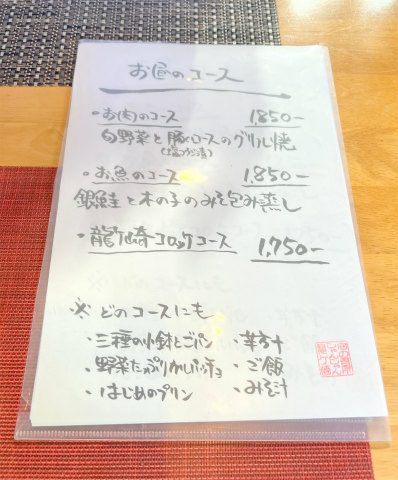 お昼のコース
・お肉のコース 1,850-
旬野菜と豚ロースのグリル焼
(塩こうじ漬)
・お魚のコース 1,850-
銀鮭と木の子のみそ包み蒸し
・龍ケ崎コロッケコース 1,750-
※どのコースにも
・三種の小鉢とごパン ・茶す汁
・野菜たっぷりカルパッチョ ・ご飯
・はじめのプリン ・みそ汁